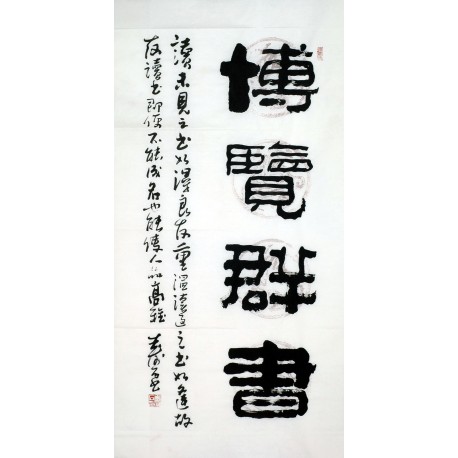 博覽群書
讀未見之书如得良友重溫讀過之书如逢故
友讀书即便不能成名也能使人品高雅